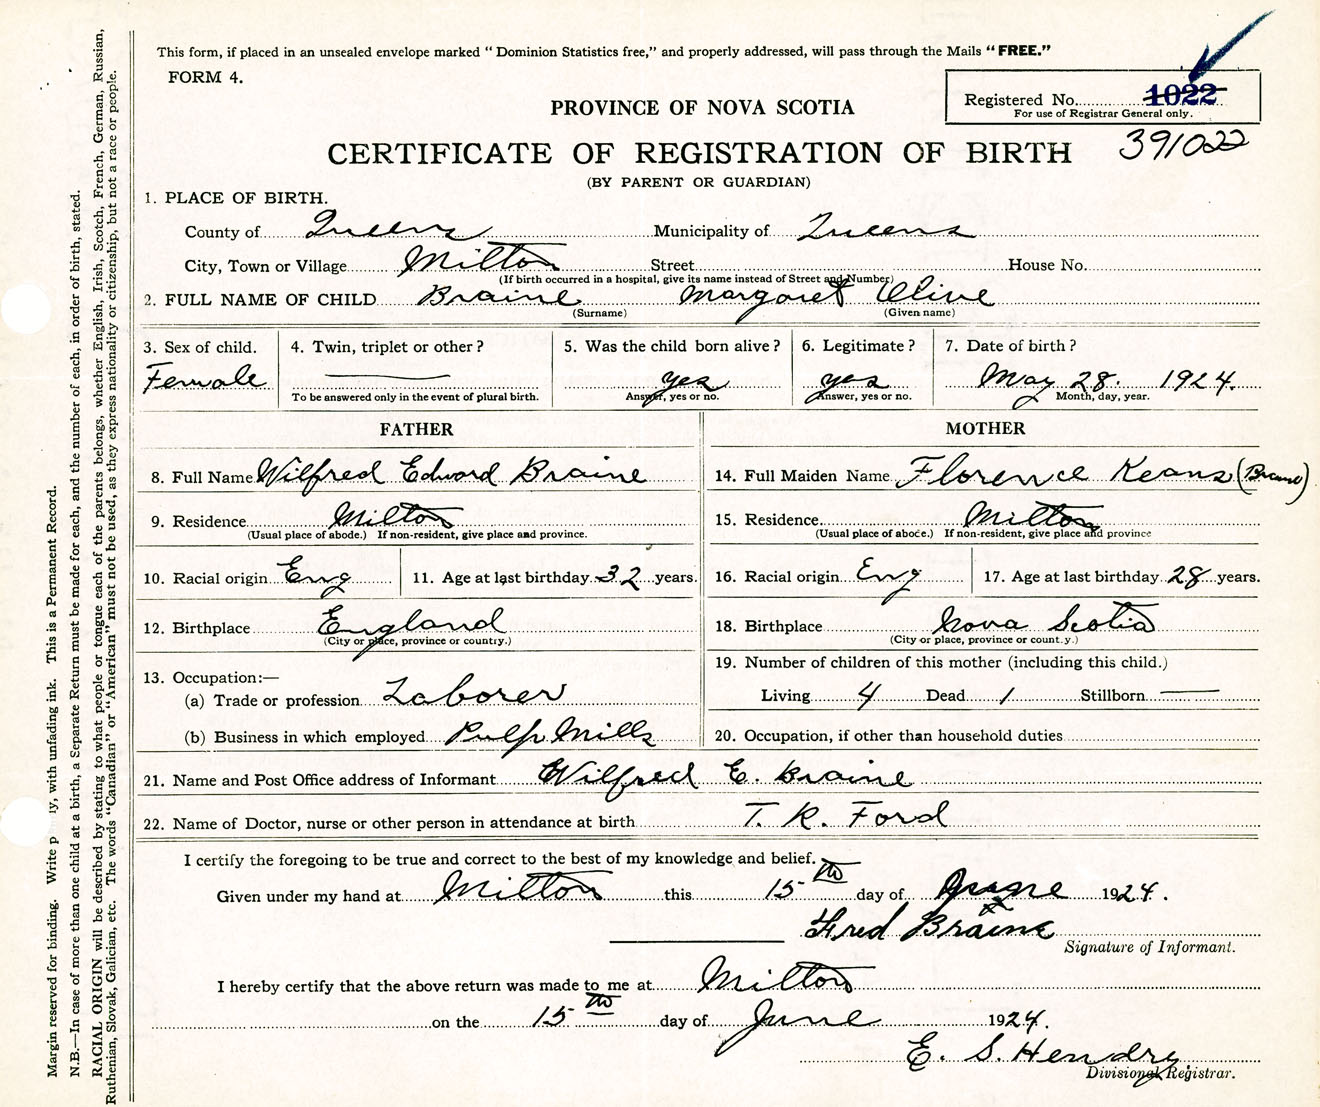 This form, if placed in an unsealed envelope marked "Dominion Statistics free," and properly addressed, will pass through the Mails "FREE."
FORM 4.
Registered No. 1022
For use of Registrar General only.
PROVINCE OF NOVA SCOTIA
391022
CERTIFICATE OF REGISTRATION OF BIRTH
(BY PARENT OR GUARDIAN)
1. PLACE OF BIRTH.
County of Queens Municipality of Queens
City, Town or Village Milton Street House No.
(If birth occurred in a hospital, give its name instead of Street and Number)
2. FULL NAME OF CHILD Braine Margaret Olive
(Surname) (Given name)
3. Sex of child. 4. Twin, triplet or other? 5. Was the child born alive? 6. Legitimate? 7. Date of birth?
Female — yes yes May 28. 1924.
To be answered only in the event of plural birth. Answer, yes or no. Answer, yes or no. Month, day, year.
FATHER MOTHER
8. Full Name Wilfred Edward Braine 14. Full Maiden Name Florence Keans (Braine)
9. Residence Milton 15. Residence Milton
(Usual place of abode.) If non-resident, give place and province. (Usual place of abode.) If non-resident, give place and province
10. Racial origin Eng 11. Age at last birthday 32 years. 16. Racial origin Eng 17. Age at last birthday 28 years.
12. Birthplace England 18. Birthplace Nova Scotia
(City or place, province or country.) (City or place, province or country.)
13. Occupation:— 19. Number of children of this mother (including this child.)
(a) Trade or profession Laborer Living 4 Dead 1 Stillborn —
(b) Business in which employed Pulp Mills 20. Occupation, if other than household duties
21. Name and Post Office address of Informant Wilfred E. Braine
22. Name of Doctor, nurse or other person in attendance at birth T. R. Ford
I certify the foregoing to be true and correct to the best of my knowledge and belief.
Given under my hand at Milton this 15th day of 1924.
Fred Braine
Signature of Informant.
I hereby certify that the above return was made to me at Milton
on the 15th day of June 1924.
E. S. Hendry
Divisional Registrar.
Margin reserved for binding. Write with unfading ink. This is a Permanent Record.
N.B.—In case of more than one child at a birth, a Separate Return must be made for each, and the number of each, in order of birth, stated.
RACIAL ORIGIN will be described by stating to what people or tongue each of the parents belongs, whether English, Irish, Scotch, French, German, Russian,
Ruthenian, Slovak, Galician, etc. The words "Canadian" or "American" must not be used, as they express nationality or citizenship, but not a race or people.